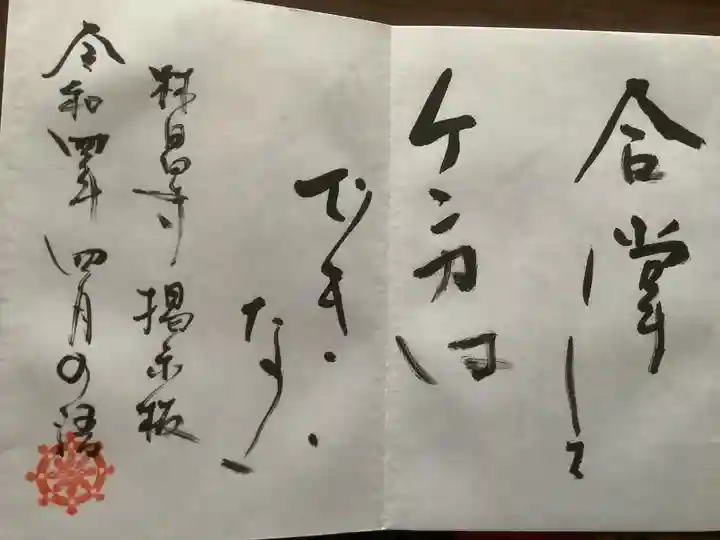 合掌して
ケンカは
でき
ない
林昌寺 掲示板
令和四年 四月の語